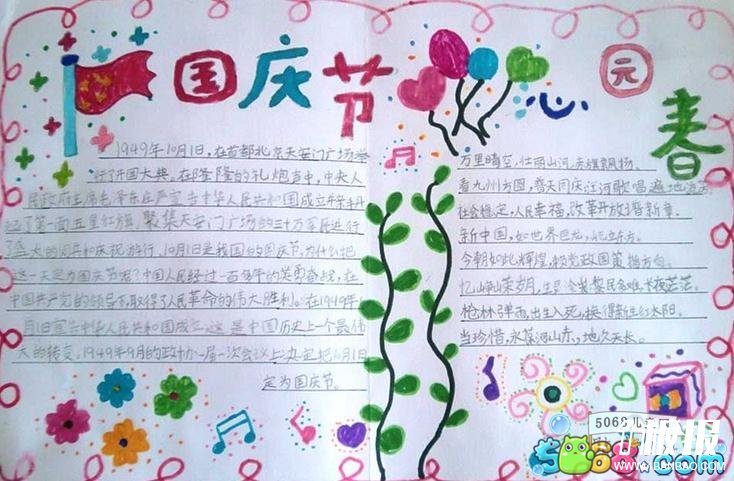 国庆节
心
元
春
1949年10月1日,在首都北京天安门广场举
行了开国大典,在隆隆的礼炮声中,中央人
民政府主席毛泽东庄严宣告中华人民共和国成立并亲手升
起了第一面五星红旗。聚集天安门广场的三十万军民进行
了盛大的阅兵和庆祝游行。10月1日是我国的国庆节,为什么把
这一天定为国庆节呢?中国人民经过一百多年的英勇奋战,在
中国共产党的领导下,取得了人民革命的伟大胜利。在1949年10
月1日宣告中华人民共和国成立。这是中国历史上一个最伟
大的转变。1949年9月的政协一届一次会议上决定把10月1日
定为国庆节。
万里晴空,壮丽山河,赤旗飘扬。
看九州方圆,普天同庆,江河歌唱,遍地
社会稳定,人民幸福,改革开放谱新章。
新中国,如世界巨龙,屹立东方。
今朝如此辉煌,赖党政国策指方向。
忆峥嵘岁月,黎民多难,长夜茫茫。
枪林弹雨,出生入死,换得新生红太阳。
当珍惜,永葆河山赤,地久天长。
5068儿
5068.com
板报
www.banbao.com